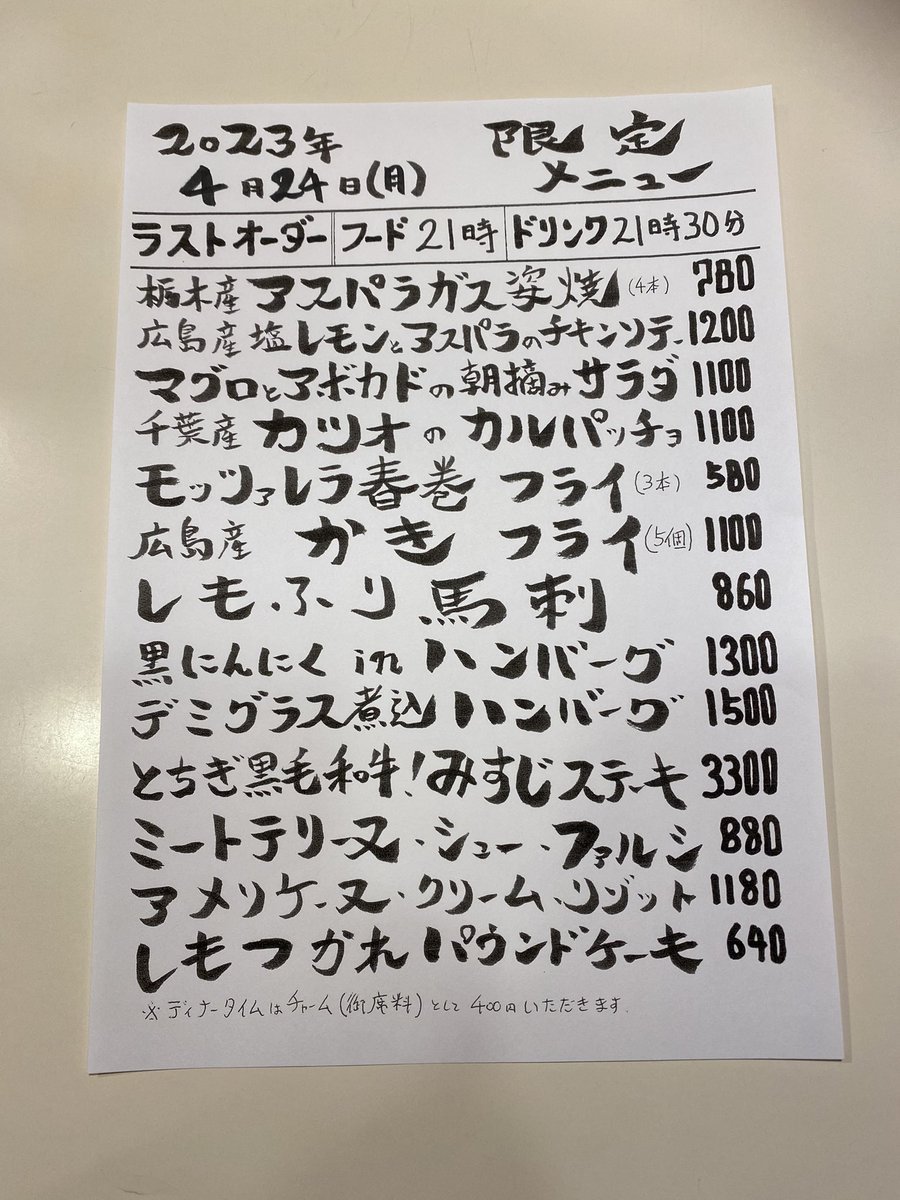 2023年 限定
4月24日(月) メニュー
ラストオーダー フード21時 ドリンク21時30分
栃木産 アスパラガス姿焼(4本) 780
広島産 塩レモンとアスパラのチキンソテー 1200
マグロとアボカドの朝摘みサラダ 1100
千葉産 カツオのカルパッチョ 1100
モッツァレラ春巻 フライ(3本) 580
広島産 かき フライ(5個) 1100
しもふり 馬刺 860
黒にんにく in ハンバーグ 1300
デミグラス煮込ハンバーグ 1500
とちぎ黒毛和牛!みすじステーキ 3300
ミートテリーヌ・シュー・ファルシ 880
アメリケーヌ・クリーム・リゾット 1180
しもつかれ パウンドケーキ 640
※ディナータイムはチャーム(御席料)として400円いただきます.